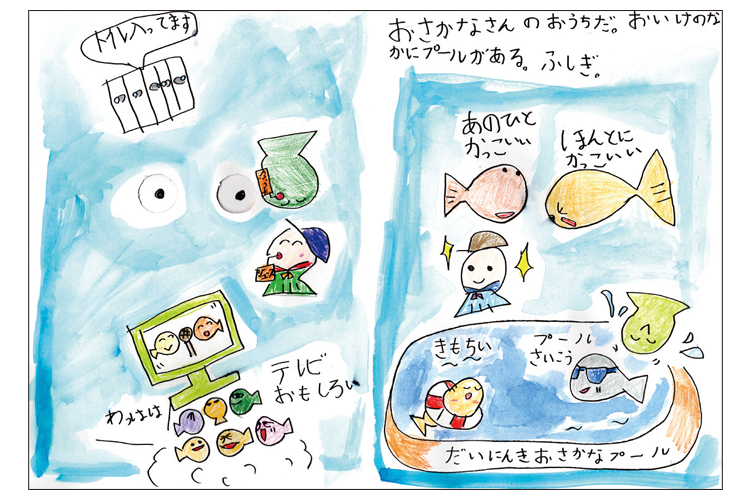 トイレ入ってます
ジュース
ジュース
テレビ
おもしろい
わははは
おさかなさんのおうちだ。おいけのな
かにプールがある。ふしぎ。
あのひと
かっこいい
ほんとに
かっこいい
きもちい
プール
さいこう
だいにんきおさかなプール